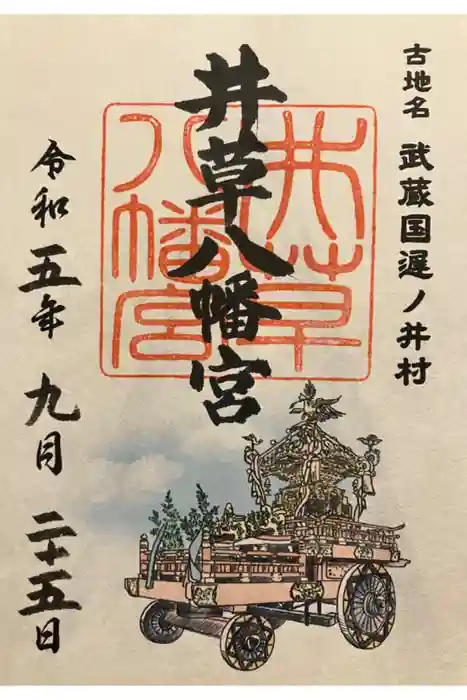 古地名 武蔵国遅ノ井村
井草八幡宮
井草
八幡宮
令和五年九月二十五日